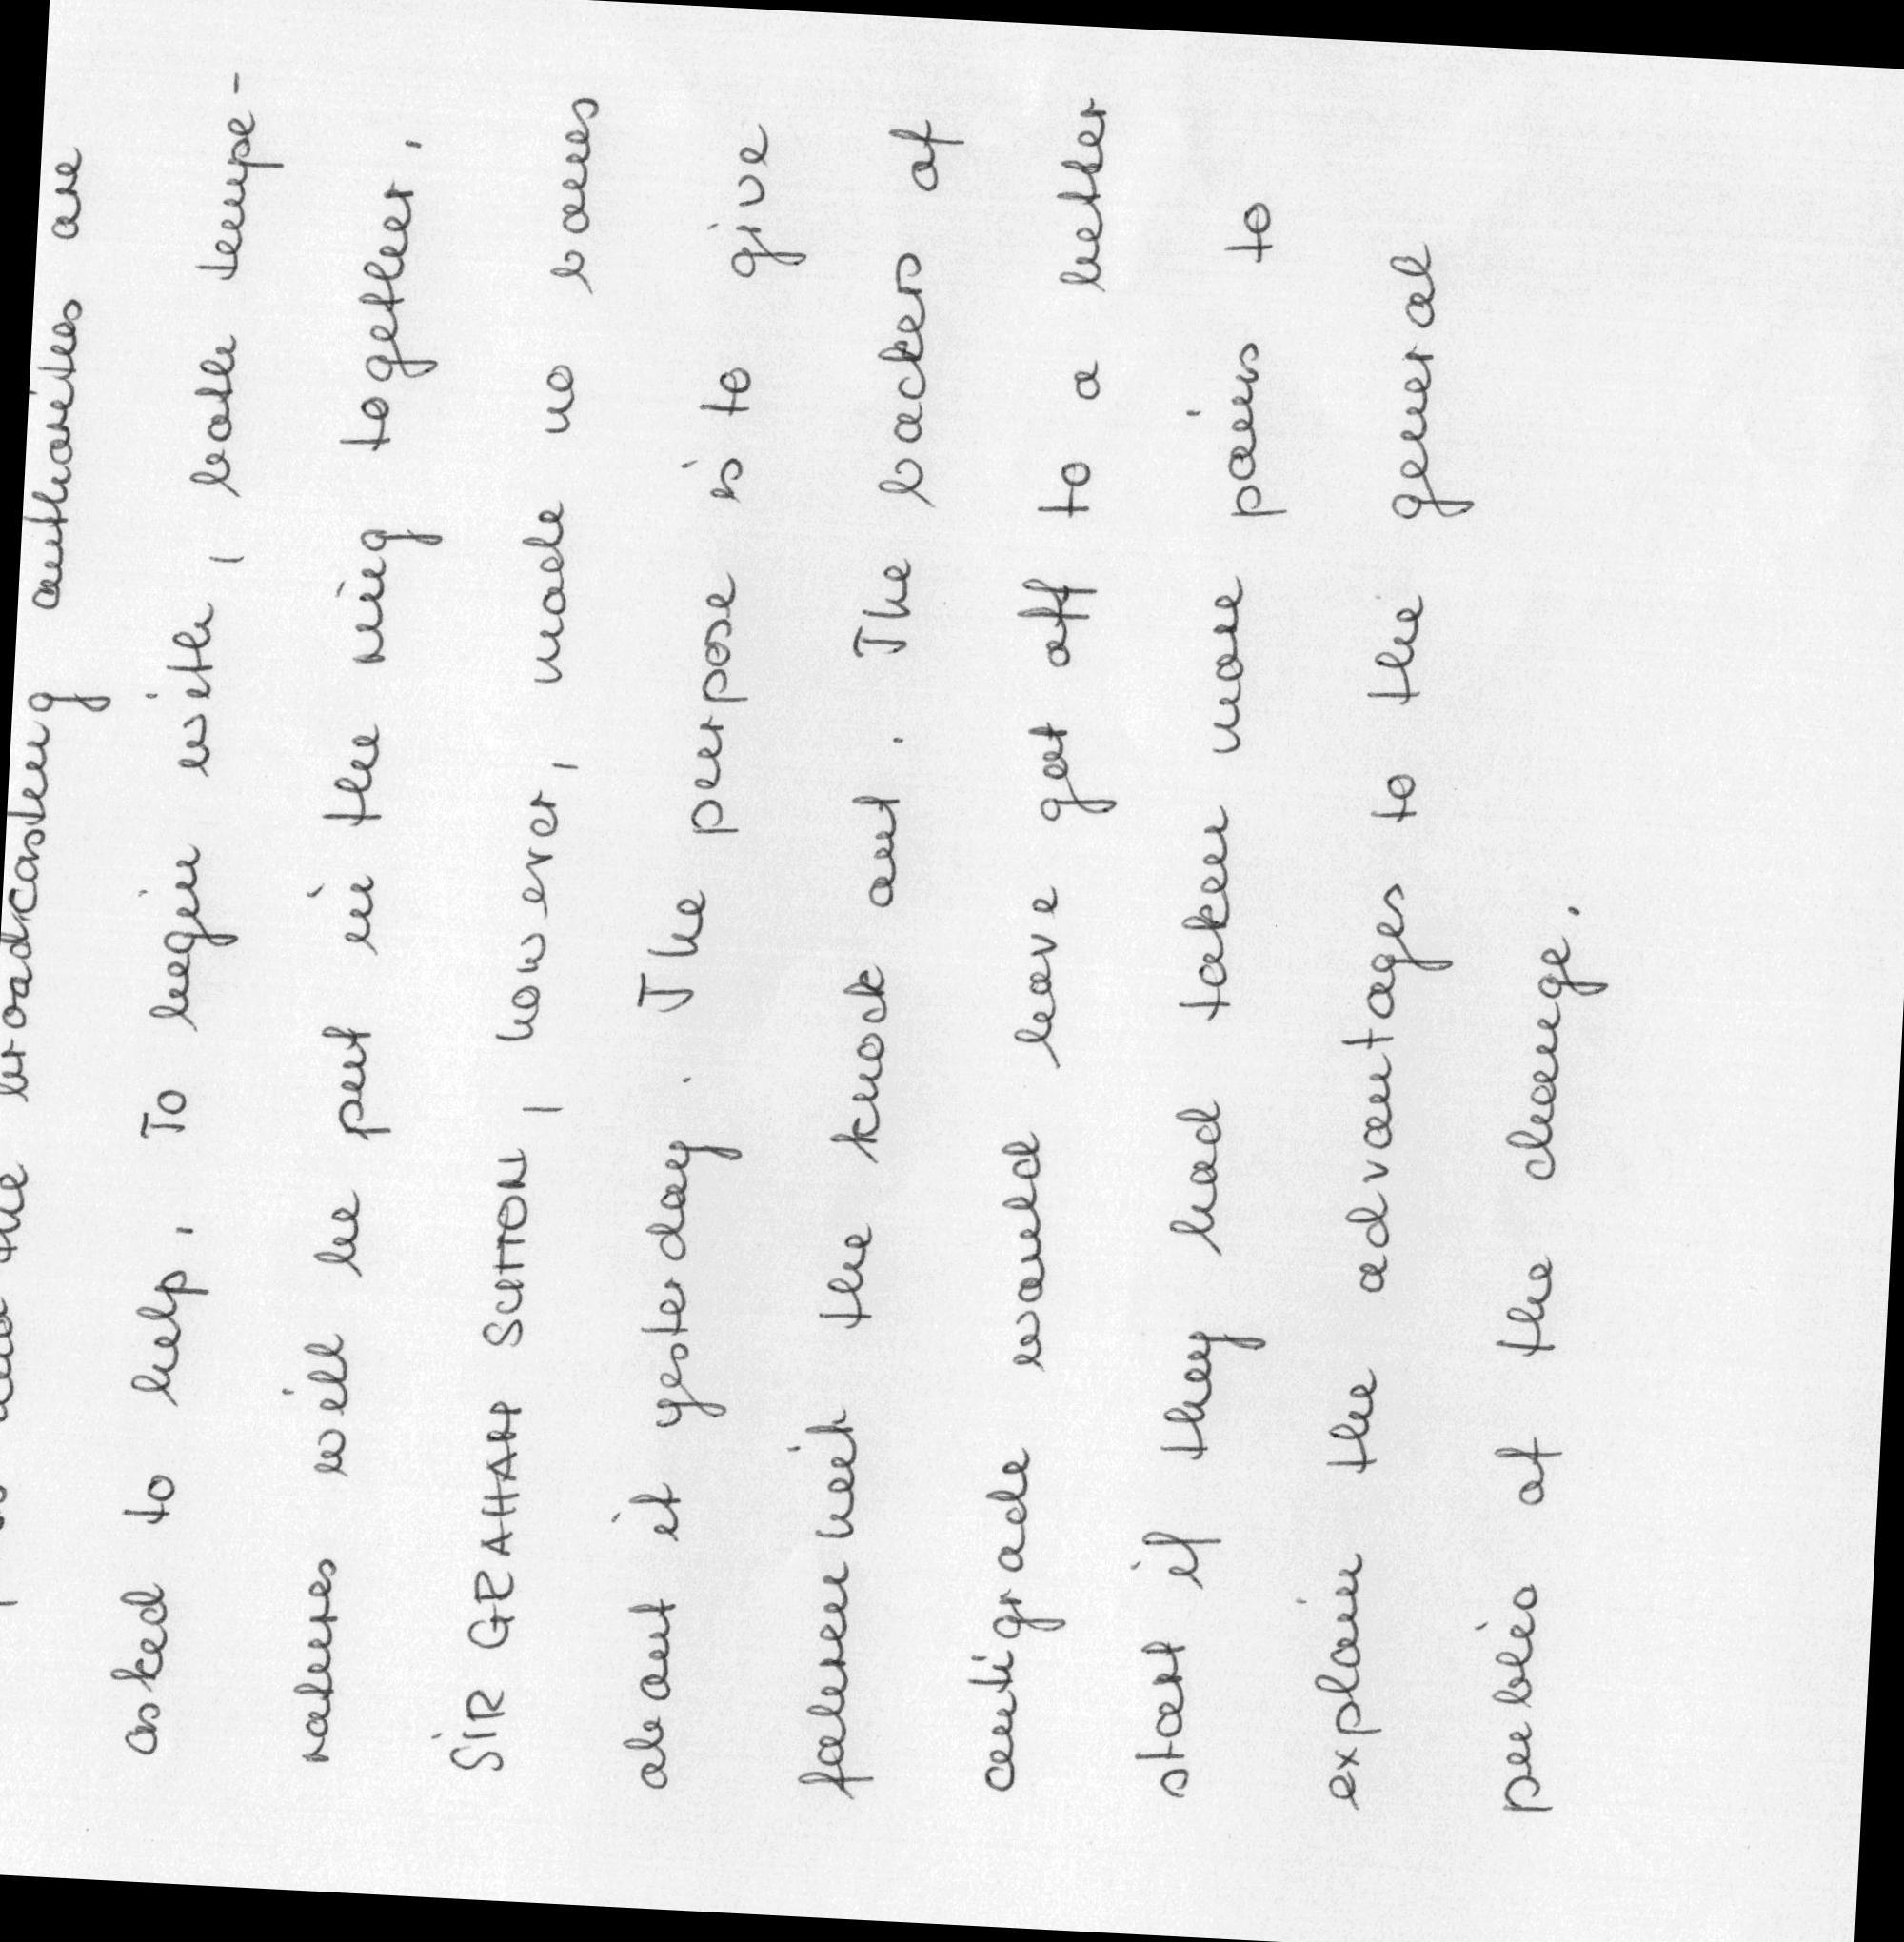 the broadcasting authorities are
asked to help. To begin with, both tempe-
ratures will be put in the ring together.
SIR GRAHAM SUTTON, however, made no bones
about it yesterday. The purpose is to give
fahrenheit the knock out. The backers of
centigrade would have got off to a better
start if they had taken more pains to
explain the advantages to the general
public of the change.